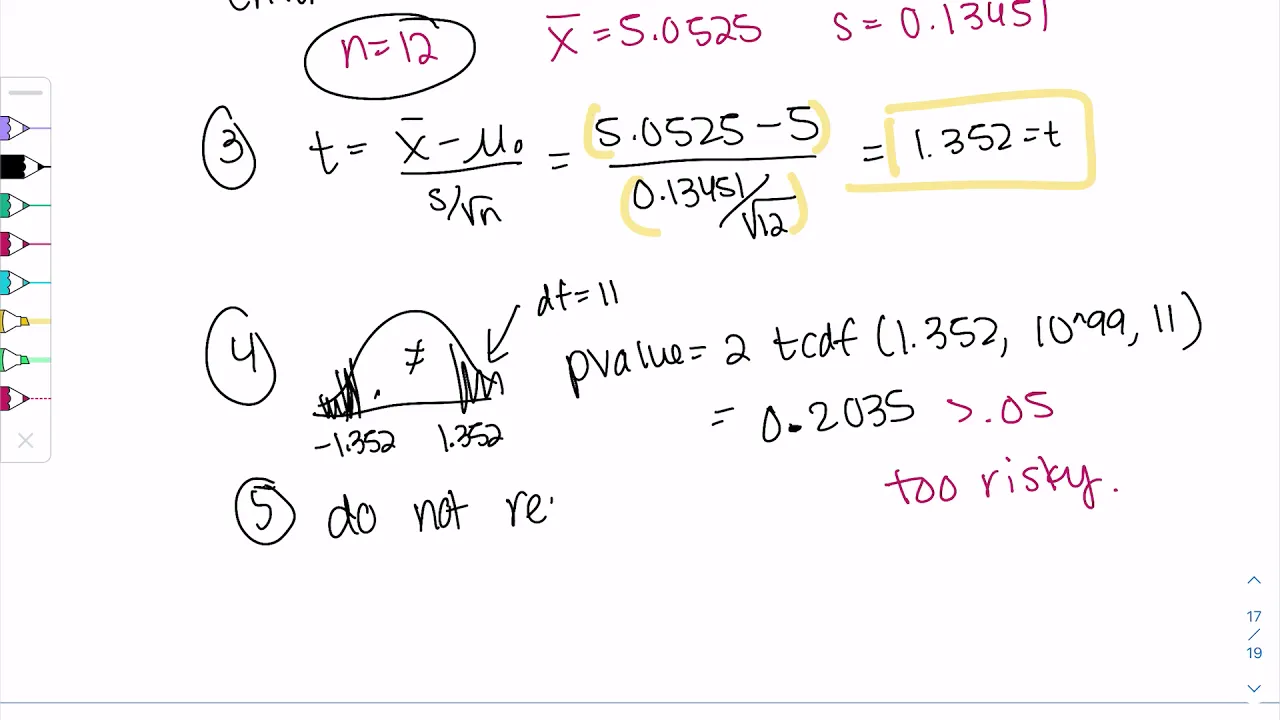 n=12 x̄=5.0525 s=0.13451
③ t = x̄-μ₀ / s/√n = (5.0525-5) / (0.13451/√12) = 1.352=t
df=11
④ ≠ pvalue= 2 tcdf (1.352, 10^99, 11)
-1.352 1.352
= 0.2035 >.05
too risky.
⑤ do not re
17
/
19